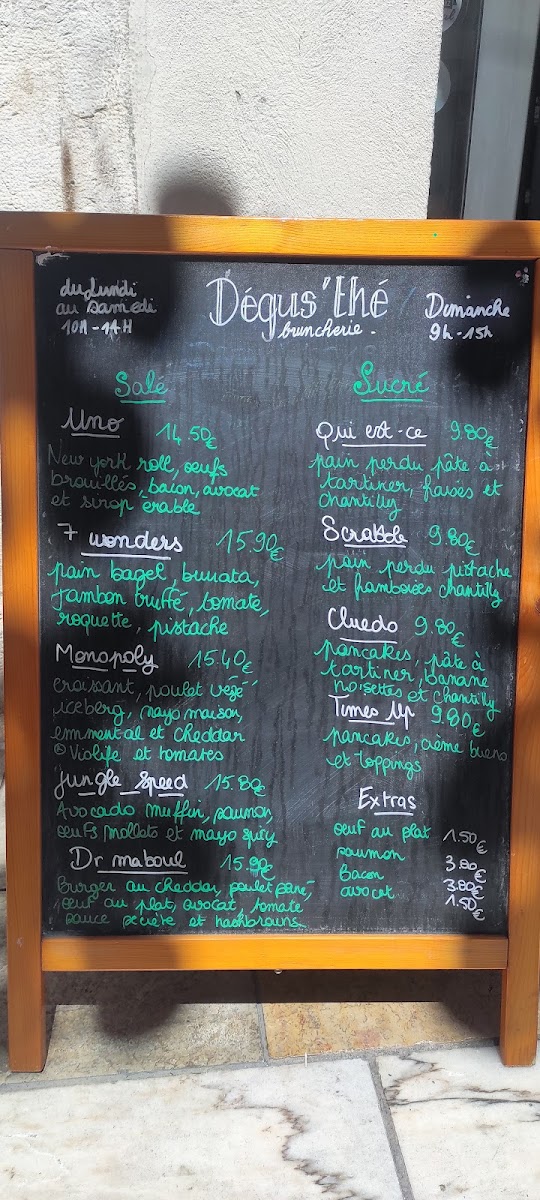 du Lundi
au Samedi
10H-14H
Dégus'thé
bruncherie.
Dimanche
9h-15h
Salé
Uno 14.50€
New york roll, oeufs
brouillés, bacon, avocat
et sirop érable
7 wonders 15.90€
pain bagel, burrata,
jambon truffé, tomate,
roquette, pistache
Monopoly 15.40€
croissant, poulet végé
iceberg, mayo maison,
emmental et cheddar
Violife et tomates
Jungle Speed 15.80€
Avocado muffin, saumon,
oeufs mollets et mayo spicy
Dr maboul 15.90€
Burger au cheddar, poulet pané,
oeuf au plat, avocat, tomate
sauce secrète et hashbrowns
Sucré
Qui est-ce 9.80€
pain perdu pâte à
tartiner, fraises et
chantilly
Scrabble 9.80€
pain perdu pistache
et framboises chantilly
Cluedo 9.80€
pancakes, pâte à
tartiner, banane
noisettes et chantilly
Times Up 9.80€
pancakes, crème bueno
et toppings
Extras
oeuf au plat 1.50€
saumon 3.80€
bacon 3.80€
avocat 1.50€